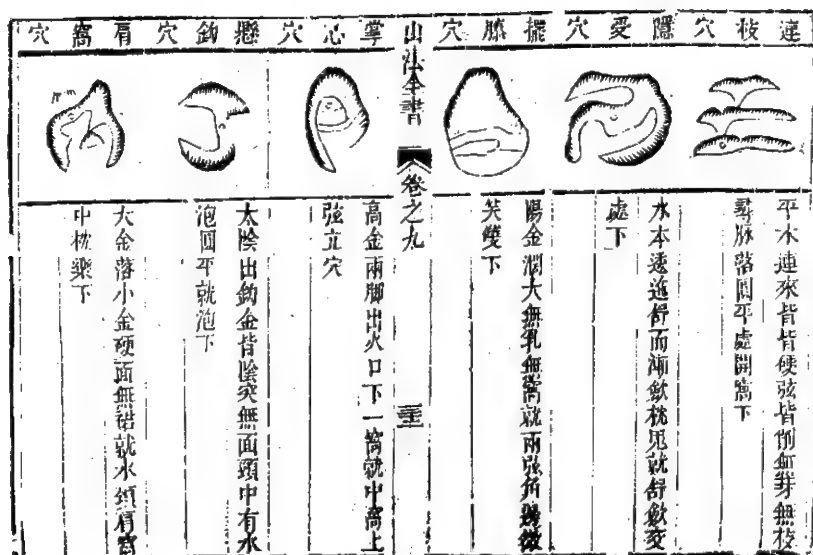 連枝穴
平木連來皆皆硬弦皆削無芽無枝
尋脉落圓平處開窩下
隱受穴
水本透迤舒而漸歛枕兜就舒歛交
處下
擺膝穴
陽金濶大無乳無窩就兩弦角微
笑雙下
山法全書
卷之九
掌心穴
高金兩脚出火口下一窩就中窩上
弦立穴
懸鈎穴
太陰出鈎金背陰突無面頭中有水
泡圓平就泡下
肩窩穴
大金落小金硬面無錯就水頭肩窩
中枕樂下